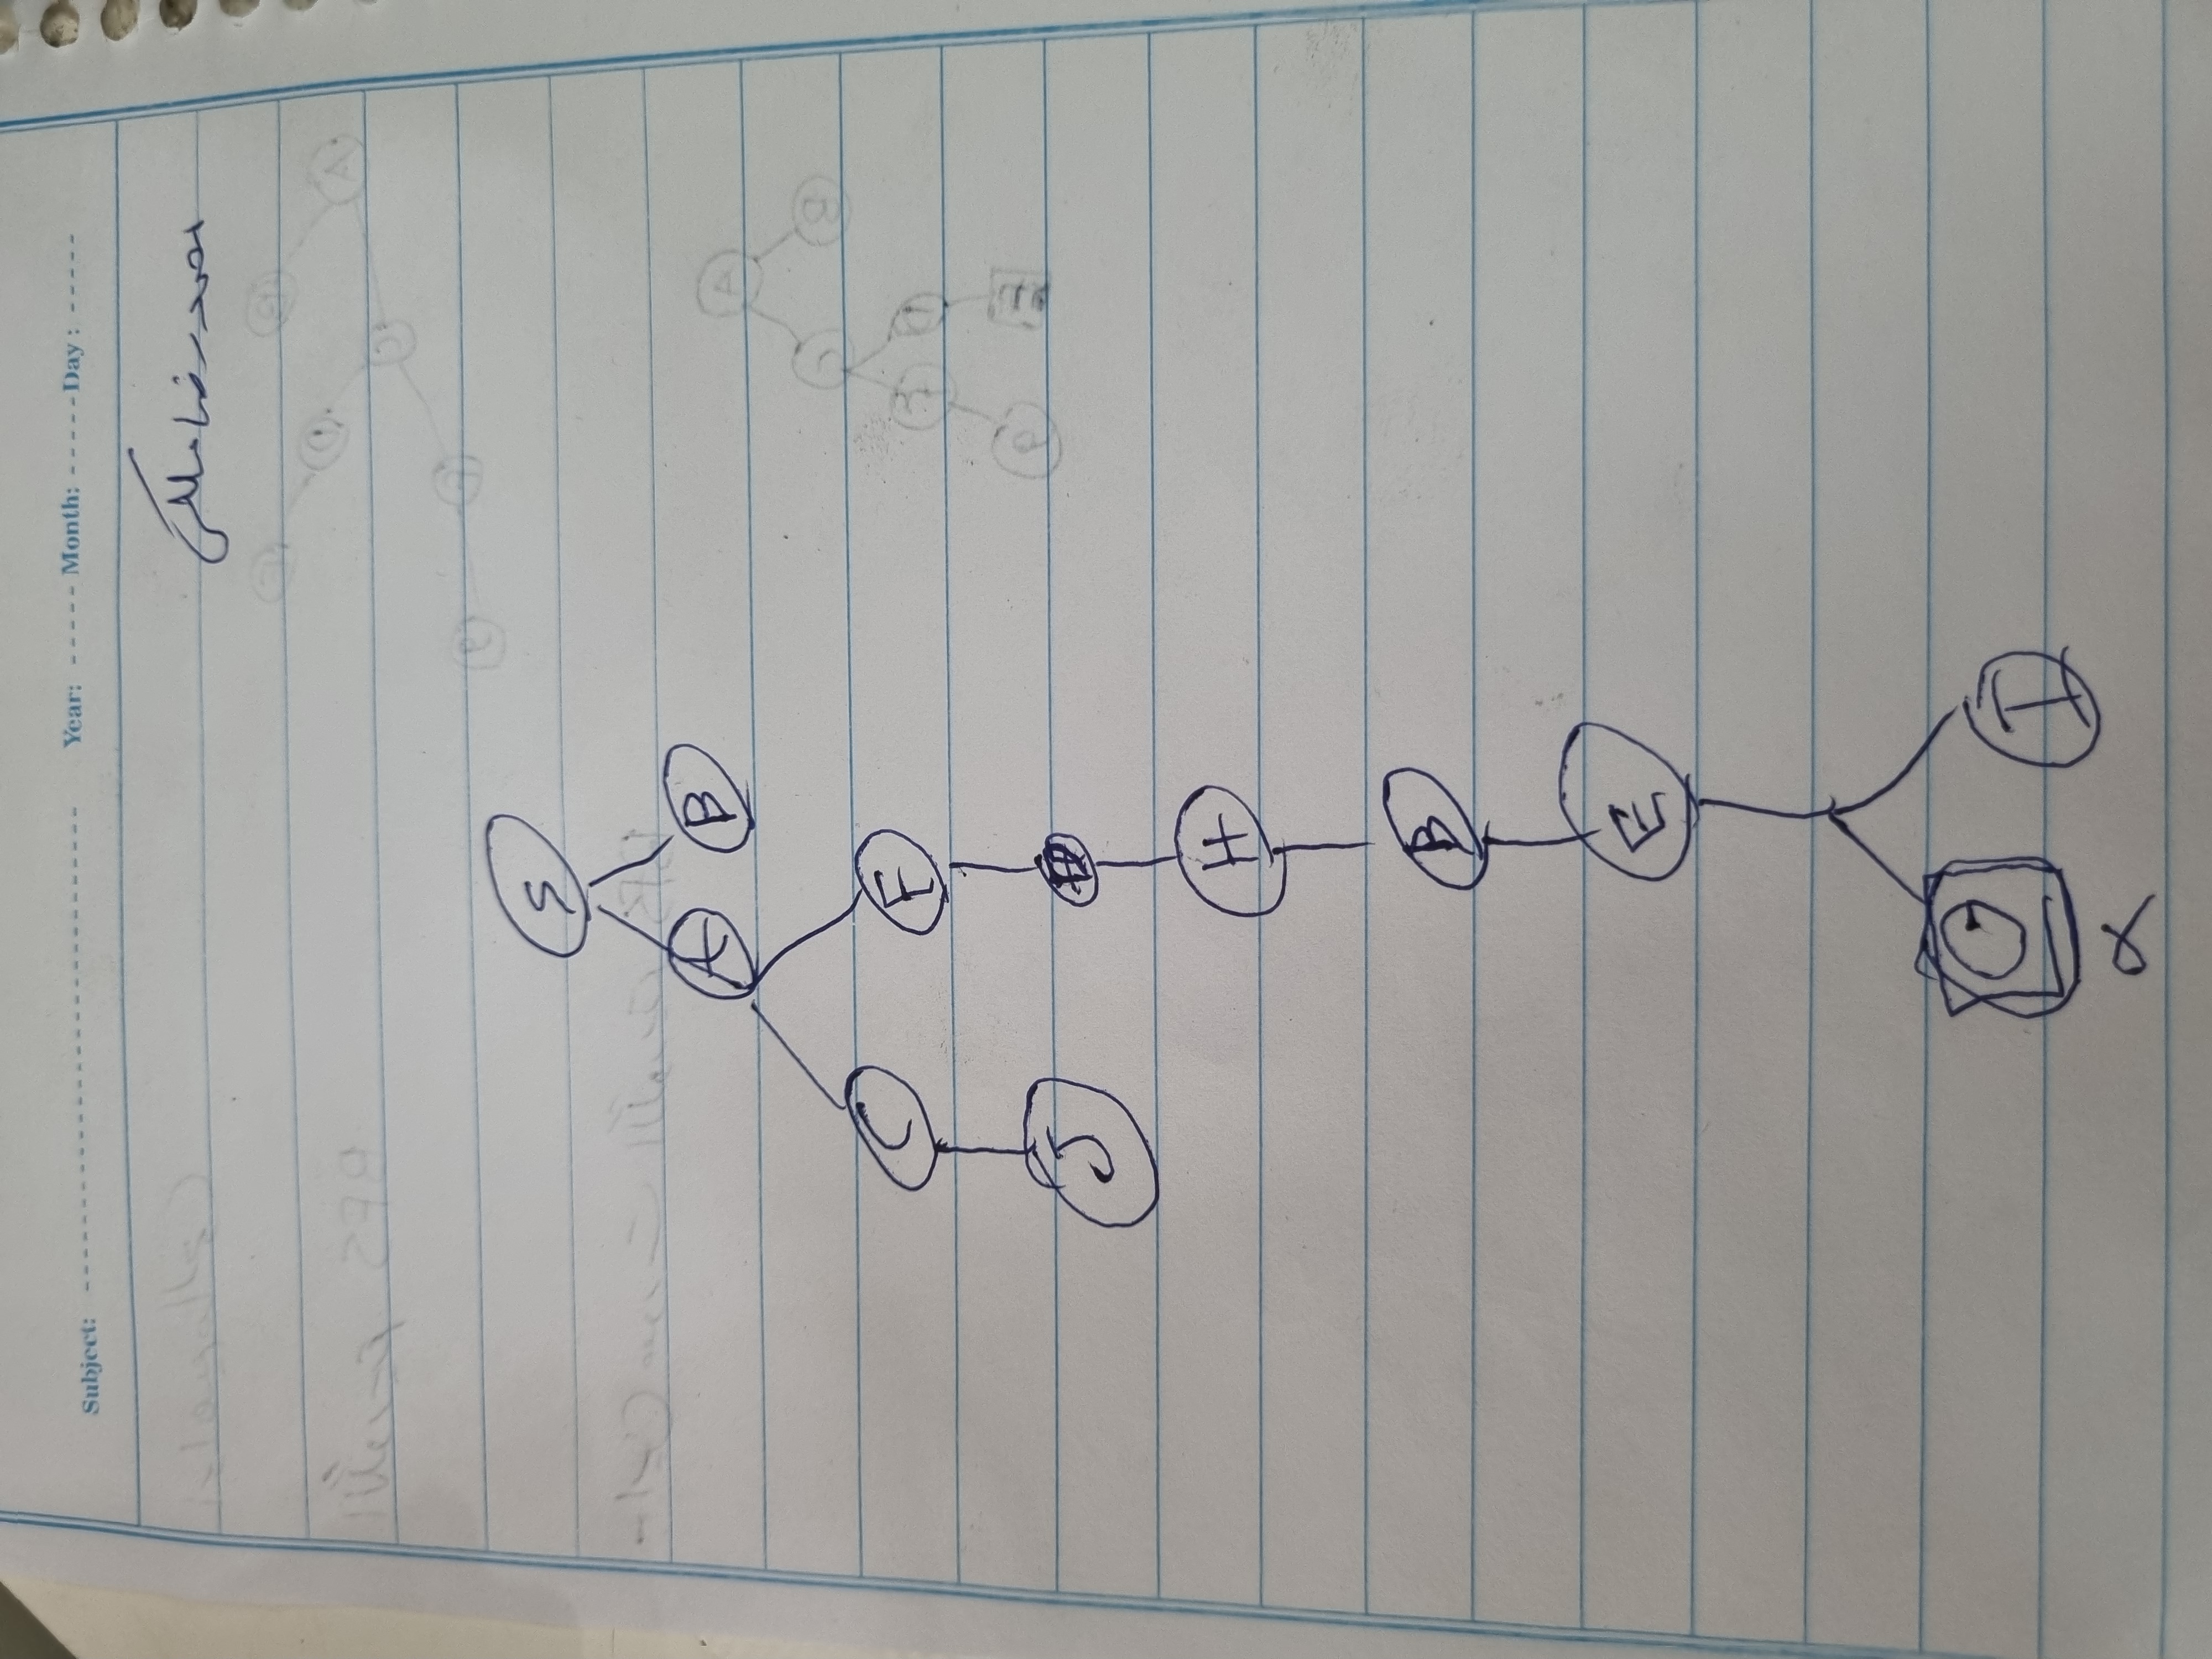 Subject: Year: Month: Day :
محمدرضا ملکی
S
A B
C F
J
H
B
E
G I
α